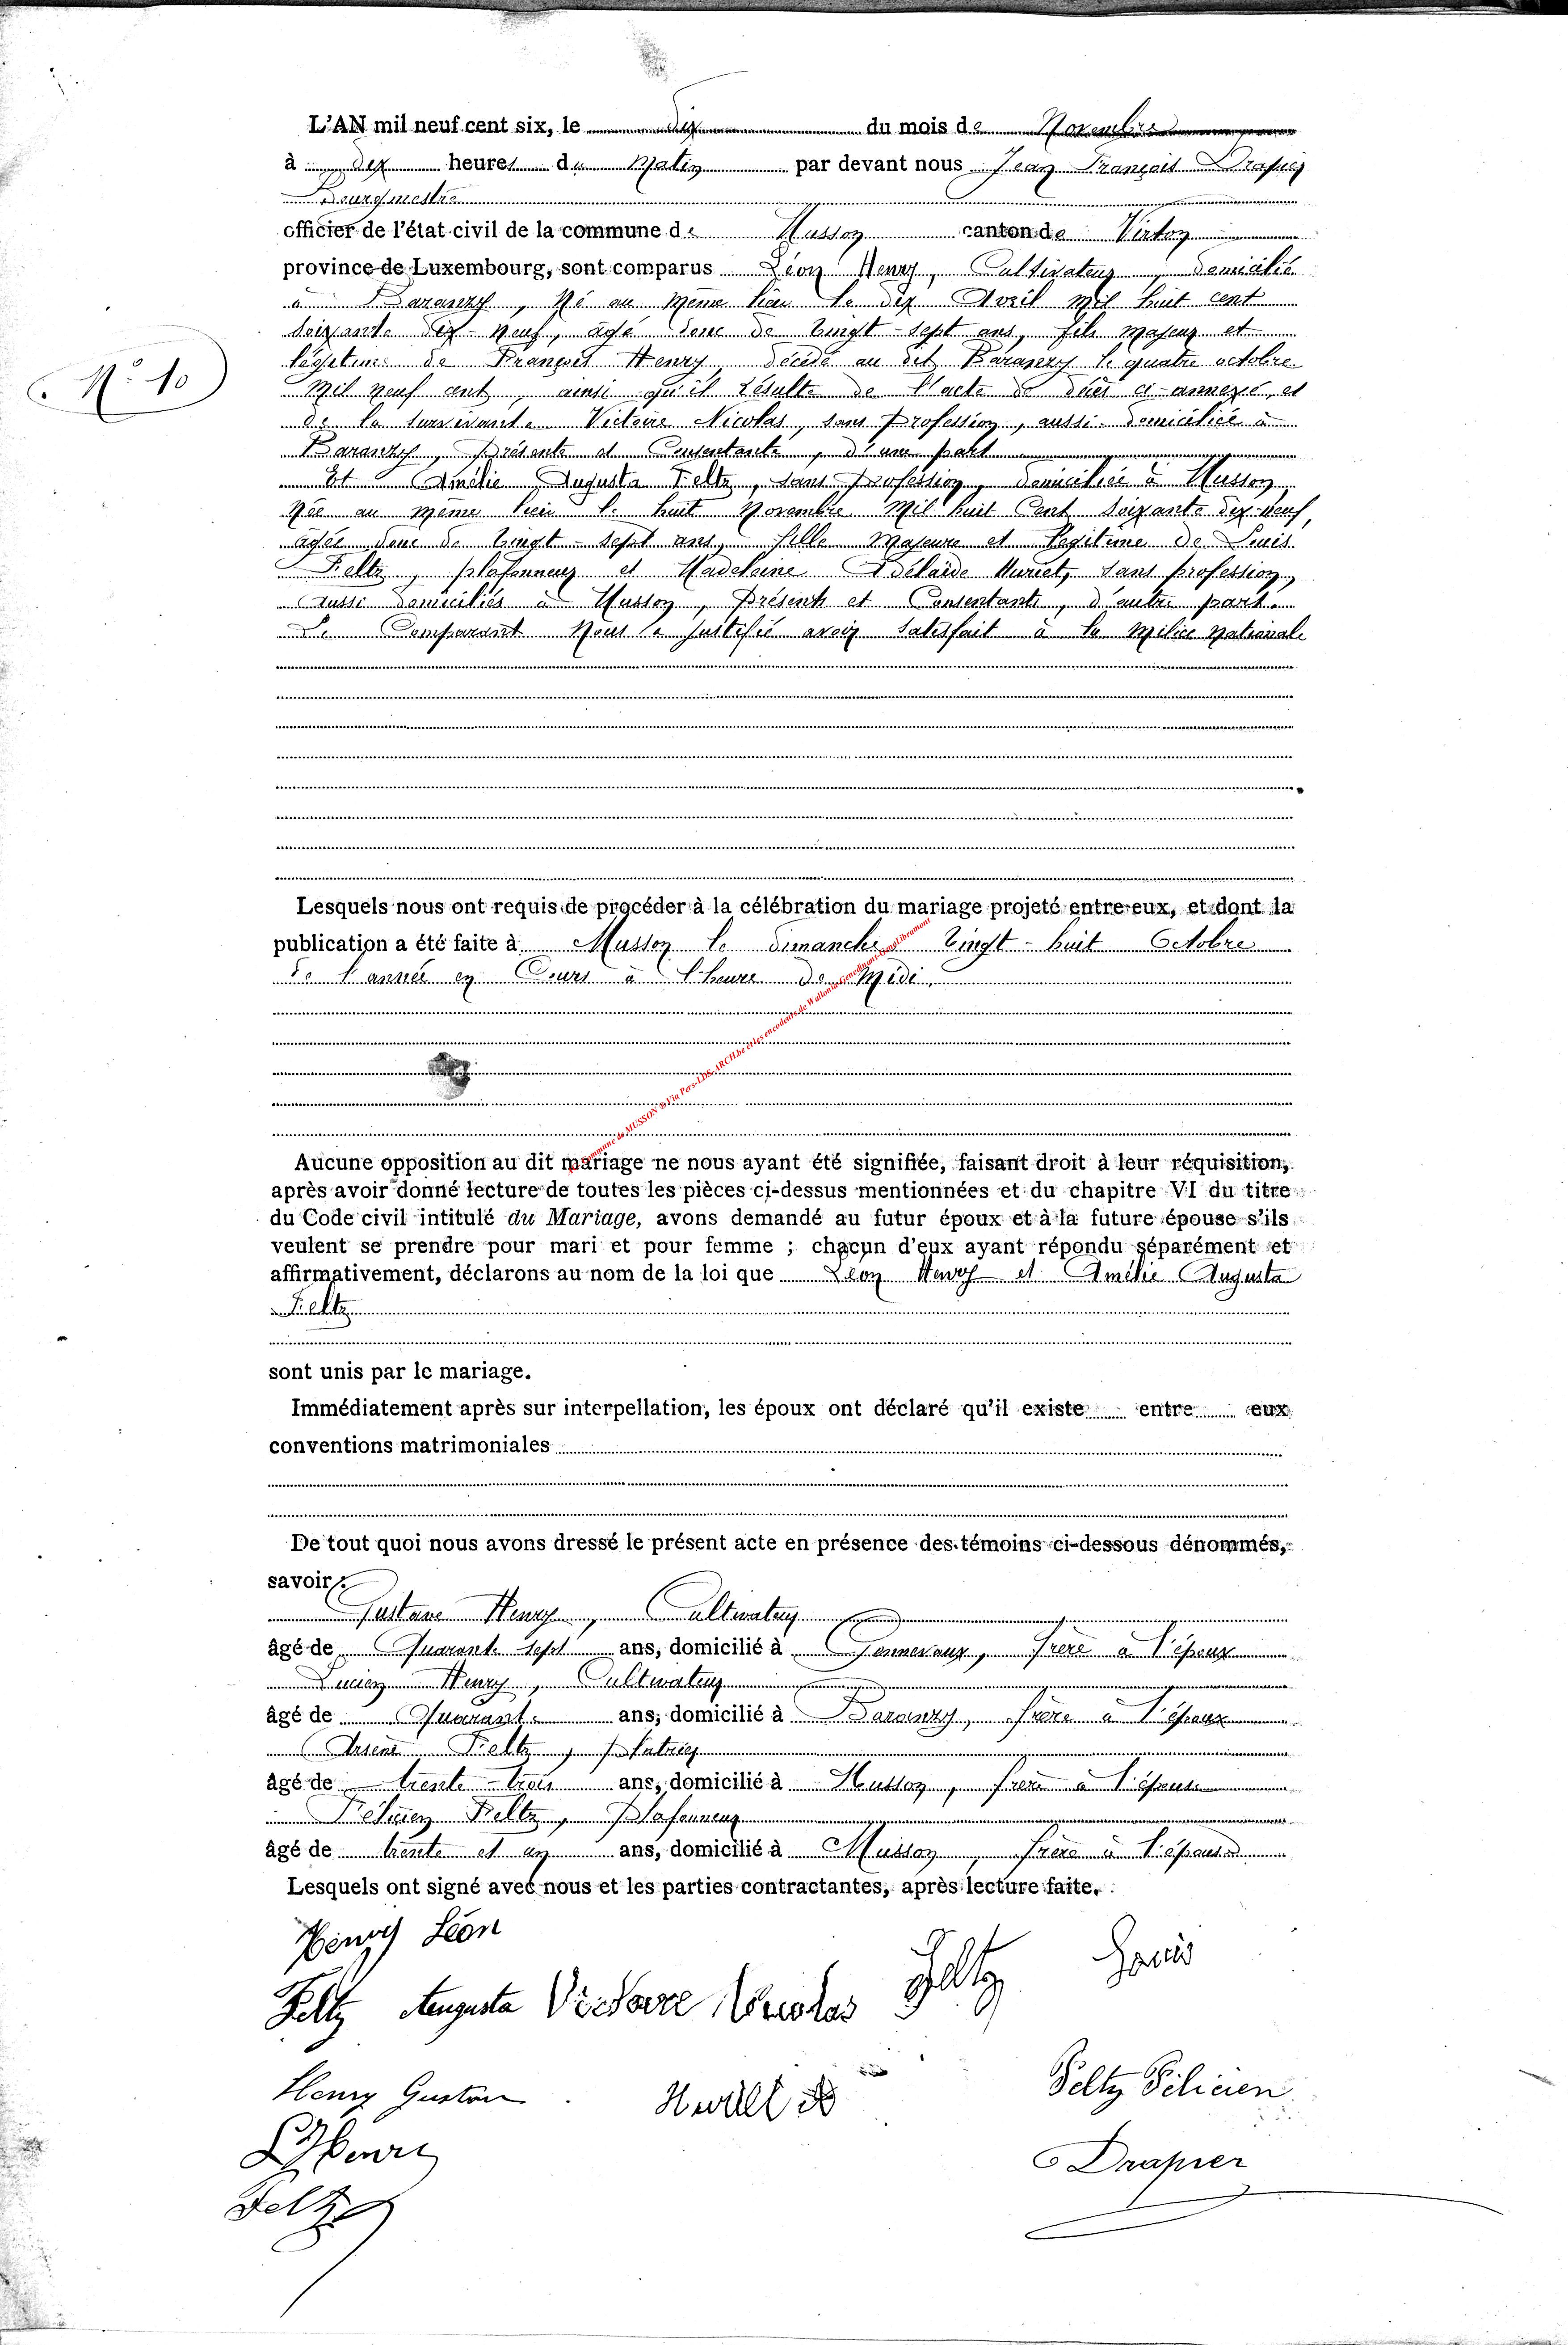 L'AN mil neuf cent six, le dix du mois de Novembre
à dix heures du Matin par devant nous Jean François Drapier
Bourgmestre
officier de l'état civil de la commune de Musson canton de Virton
province de Luxembourg, sont comparus Léon Henry, Cultivateur, domicilié
à Baranzy, Né au même lieu le dix Avril mil huit cent
soixante dix-neuf, âgé donc de vingt-sept ans, fils majeur et
légitime de François Henry, décédé au dit Baranzy le quatre octobre
mil neuf cent, ainsi qu'il résulte de l'acte de décès ci-annexé, et
N° 10
de la survivante Victoire Nicolas, sans profession, aussi domiciliée à
Baranzy, présente et Consentante, d'une part
Et Amélie Augusta Feltz, sans profession, domiciliée à Musson
Née au même lieu le huit Novembre Mil huit Cent soixante dix-neuf,
âgée donc de vingt-sept ans, fille majeure et légitime de Louis
Feltz, plafonneur et Madeleine Adélaïde Muriet, sans profession,
aussi domiciliés à Musson, présents et Consentants, d'autre part.
Le Comparant Nous a justifié avoir satisfait à la Milice Nationale
Lesquels nous ont requis de procéder à la célébration du mariage projeté entre eux, et dont la
publication a été faite à Musson le dimanche vingt-huit Octobre
de l'année en Cours à l'heure de Midi.
Commune de MUSSON © Via Pers-LDS-ARCH.be et les encodeurs de Wallonie
Aucune opposition au dit mariage ne nous ayant été signifiée, faisant droit à leur réquisition,
après avoir donné lecture de toutes les pièces ci-dessus mentionnées et du chapitre VI du titre
du Code civil intitulé du Mariage, avons demandé au futur époux et à la future épouse s'ils
veulent se prendre pour mari et pour femme ; chacun d'eux ayant répondu séparément et
affirmativement, déclarons au nom de la loi que Léon Henry et Amélie Augusta
Feltz
sont unis par le mariage.
Immédiatement après sur interpellation, les époux ont déclaré qu'il existe entre eux
conventions matrimoniales
De tout quoi nous avons dressé le présent acte en présence des témoins ci-dessous dénommés,
savoir :
Gustave Henry, Cultivateur
âgé de Quarante sept ans, domicilié à Gennevaux, frère à l'époux
Lucien Henry, Cultivateur
âgé de Quarante ans, domicilié à Baranzy, frère à l'époux
Arsène Feltz,
âgé de trente-trois ans, domicilié à Musson, frère à l'épouse
Félicien Feltz, Plafonneur
âgé de trente et un ans, domicilié à Musson, frère à l'épouse
Lesquels ont signé avec nous et les parties contractantes, après lecture faite.
Henry Léon
Feltz Augusta Victoire Nicolas Feltz Louis
Henry Gustave Feltz Félicien
L Henry Drapier
Feltz A